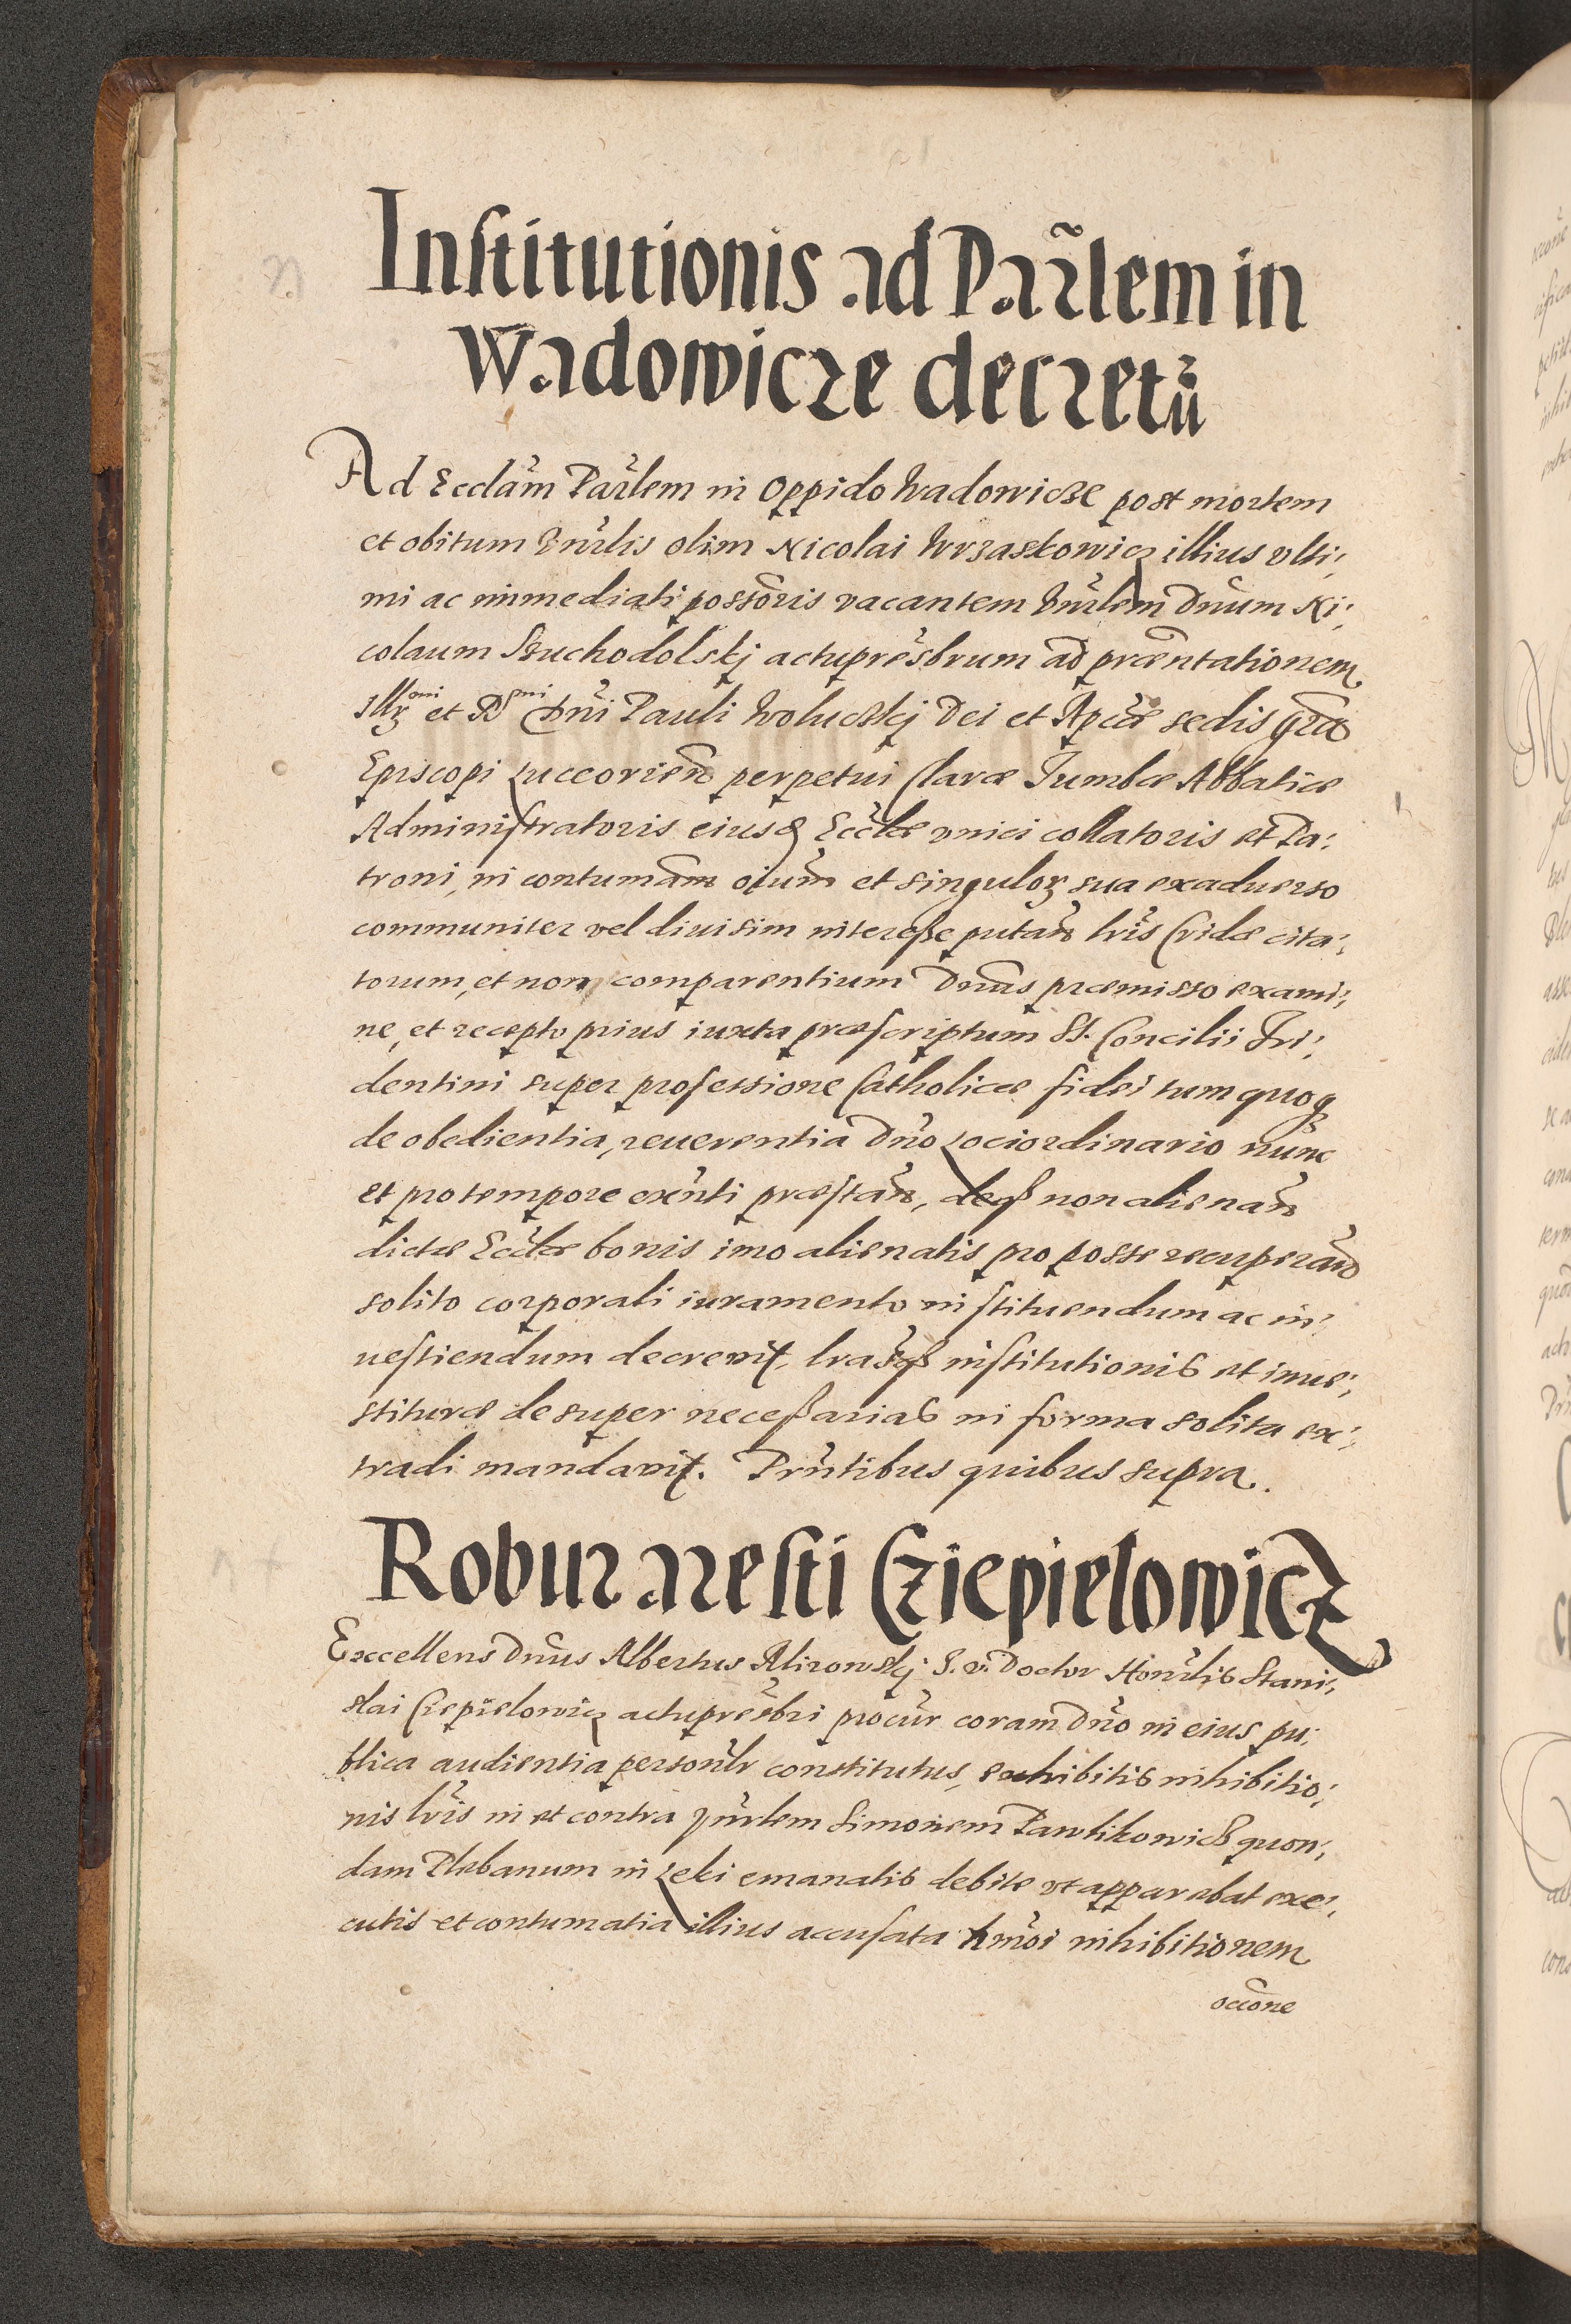 Institutionis ad Parlem in
Wadowicze decretũ
Ad Ecclãm Parlem in Oppido Wadowicze post mortem
et obitum Vnrlis olim Nicolai Wrzaskowicz illius vlti;
mi ac immediati possoris vacantem Vnrlem Dnum Ni;
colaum Szuchodolskj actupresbrum ad præntationem
et Dni Pauli Woluczkj Dei et Aplicæ sedis grã
Episcopi Luccorien perpetui Claræ Tumbæ Abbatiæ
Administratoris eiusq Ecclæ vnici collatoris et Pa;
troni, in contumam oium et singulorʒ sua exaduerso
communiter vel diuisim interesse putan lris Cridæ cita;
torum, et non comparentium Dnus præmisso exami;
ne, et recepto prius iuxta præscriptum SS. Concilii Tri;
dentini super professione Catholicæ fidei tum quoqʒ
de obedientia, reuerentia Dno Lociordinario nunc
et pro tempore exnti præstan, deqʒ non alienan
dictæ Ecclæ bonis imo alienatis pro posse recuperand
solito corporali iuramento instituendum ac in;
uestiendum decrevit, lrasqʒ institutionis et inue;
stituræ desuper necessarias in forma solita ex;
tradi mandavit. Prntibus quibus supra.
Robur aresti Cziepielowicz
Excellens Dnus Albertus J. V. Doctor Honrlis Stani;
slai Ciepielowicz actupresbri procur coram Dno in eius pu;
blica audientia personlr constitutus, exhibitis inhibitio;
nis lris in et contra Vnrlem Simonem Pawlikowicz quon;
dam Plebanum in Leki emanatis debite vt apparebat exe;
cutis et contumatia illius accusata hmoi inhibitionem
occone